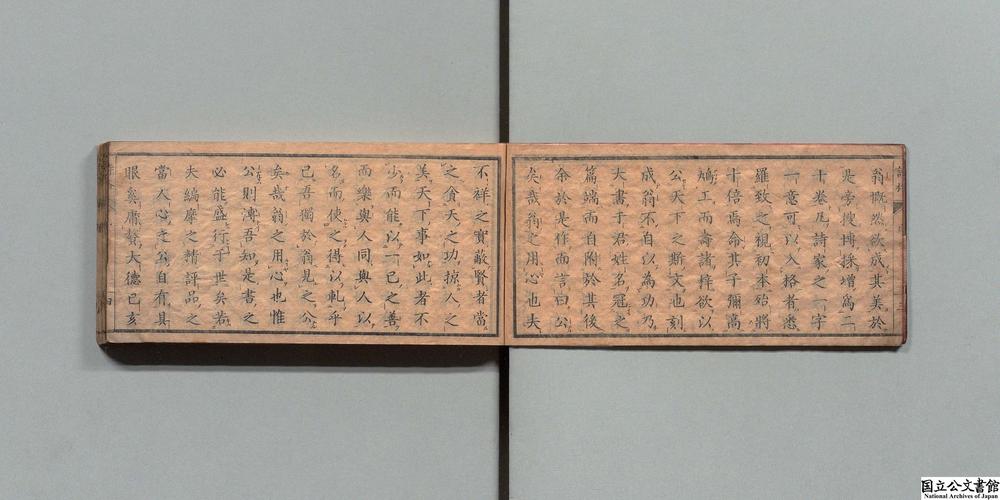 翁慨然欲成其美於
是旁搜博採增爲二
十卷凡詩家之一字
一意可以入格者悉
羅致之視初本殆將
十倍焉命其子彌高
鳩工而壽諸梓欲以
公天下之斯文也刻
成翁不自以爲功乃
大書于君姓名冠之
篇端而自附於其後
余於是作而言曰公
矣哉翁之用心也夫
不祥之實蔽賢者當
之貪天之功掠人之
美天下事如此者不
少而能以一已之善
而樂與人同與人以
名而使之得以軋乎
已吾獨於翁見之公
矣哉翁之用心也惟
公則溥吾知是書之
必能盛行于世矣若
夫編摩之精評品之
當人心之公自有具
眼奚庸贅大德已亥
国立公文書館
National Archives of Japan